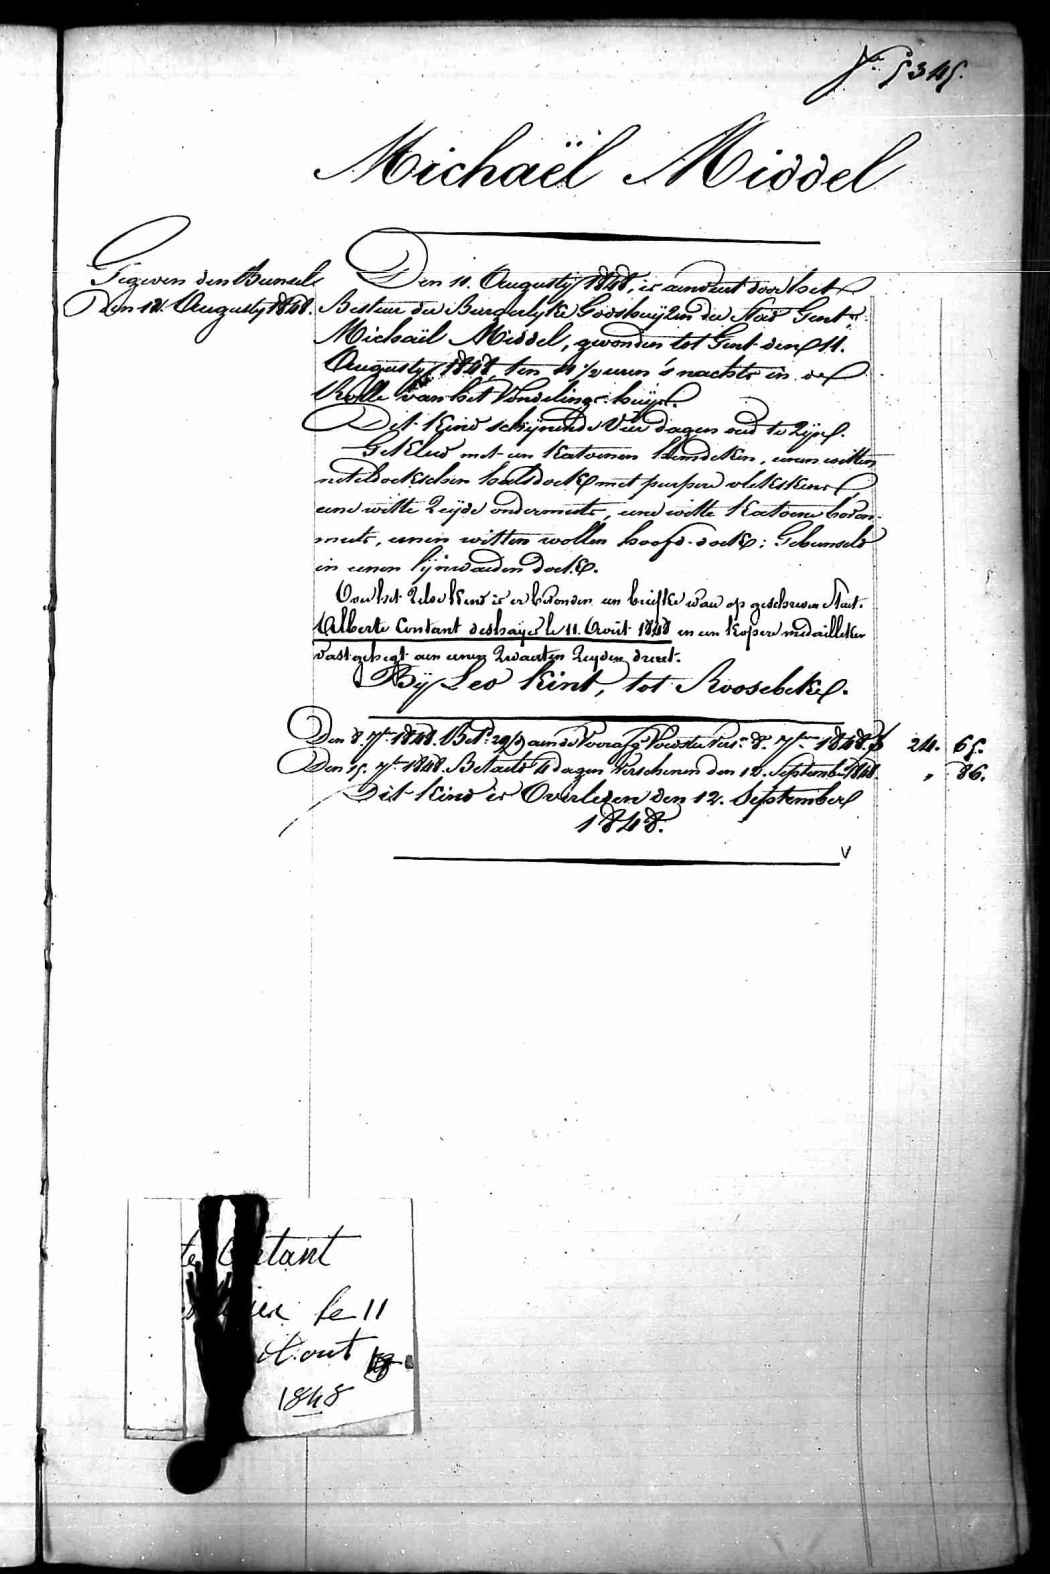 N.° 5345.
Michaël Middel
Gegeven den Bunsele
Den 12. Augusty 1848.
Den 11. Augusty 1848, is aenveirt door het
Bestuer der Burgerlyke Godshuyzen der Stad Gent
Michaël Middel, gevonden tot Gent den 11.
Augusty 1848, ten 11 1/2 uren 's nachts in de
Rolle van het Vondelings-huys.
Dit Kind schynende Vier dagen oud te zyn.
Gekleed met een katoenen hemdeken, eenen witten
neteldoekschen halsdoek met purpere vlekskens,
eene witte Zeyde ondermuts, eene witte katoene boven-
muts, eenen witten wollen hoofd-doek; Gebunseld
in eenen lynwaeden doek.
Over het Zelve Kind is er bevonden een briefke waer op geschreven Staet.
Alberte Contant deshayes le 11. Août 1848 en een kopere medailleken
vastgehegt aen eenen Zwarten Zeyden dreet.
By Leo Kint, tot Roosebeke.
Den 8. 7.bre 1848. Bet.d aen de Voorz. Voedster vers.n 8. 7.bre 1848. 24. 65.
Den 15. 7.bre 1848. Betaeld 4 dagen Verschenen den 12. September 1848. " 86.
Dit Kind is Overleden den 12. September
1848.
V
te Contant
le 11
Aout
1848